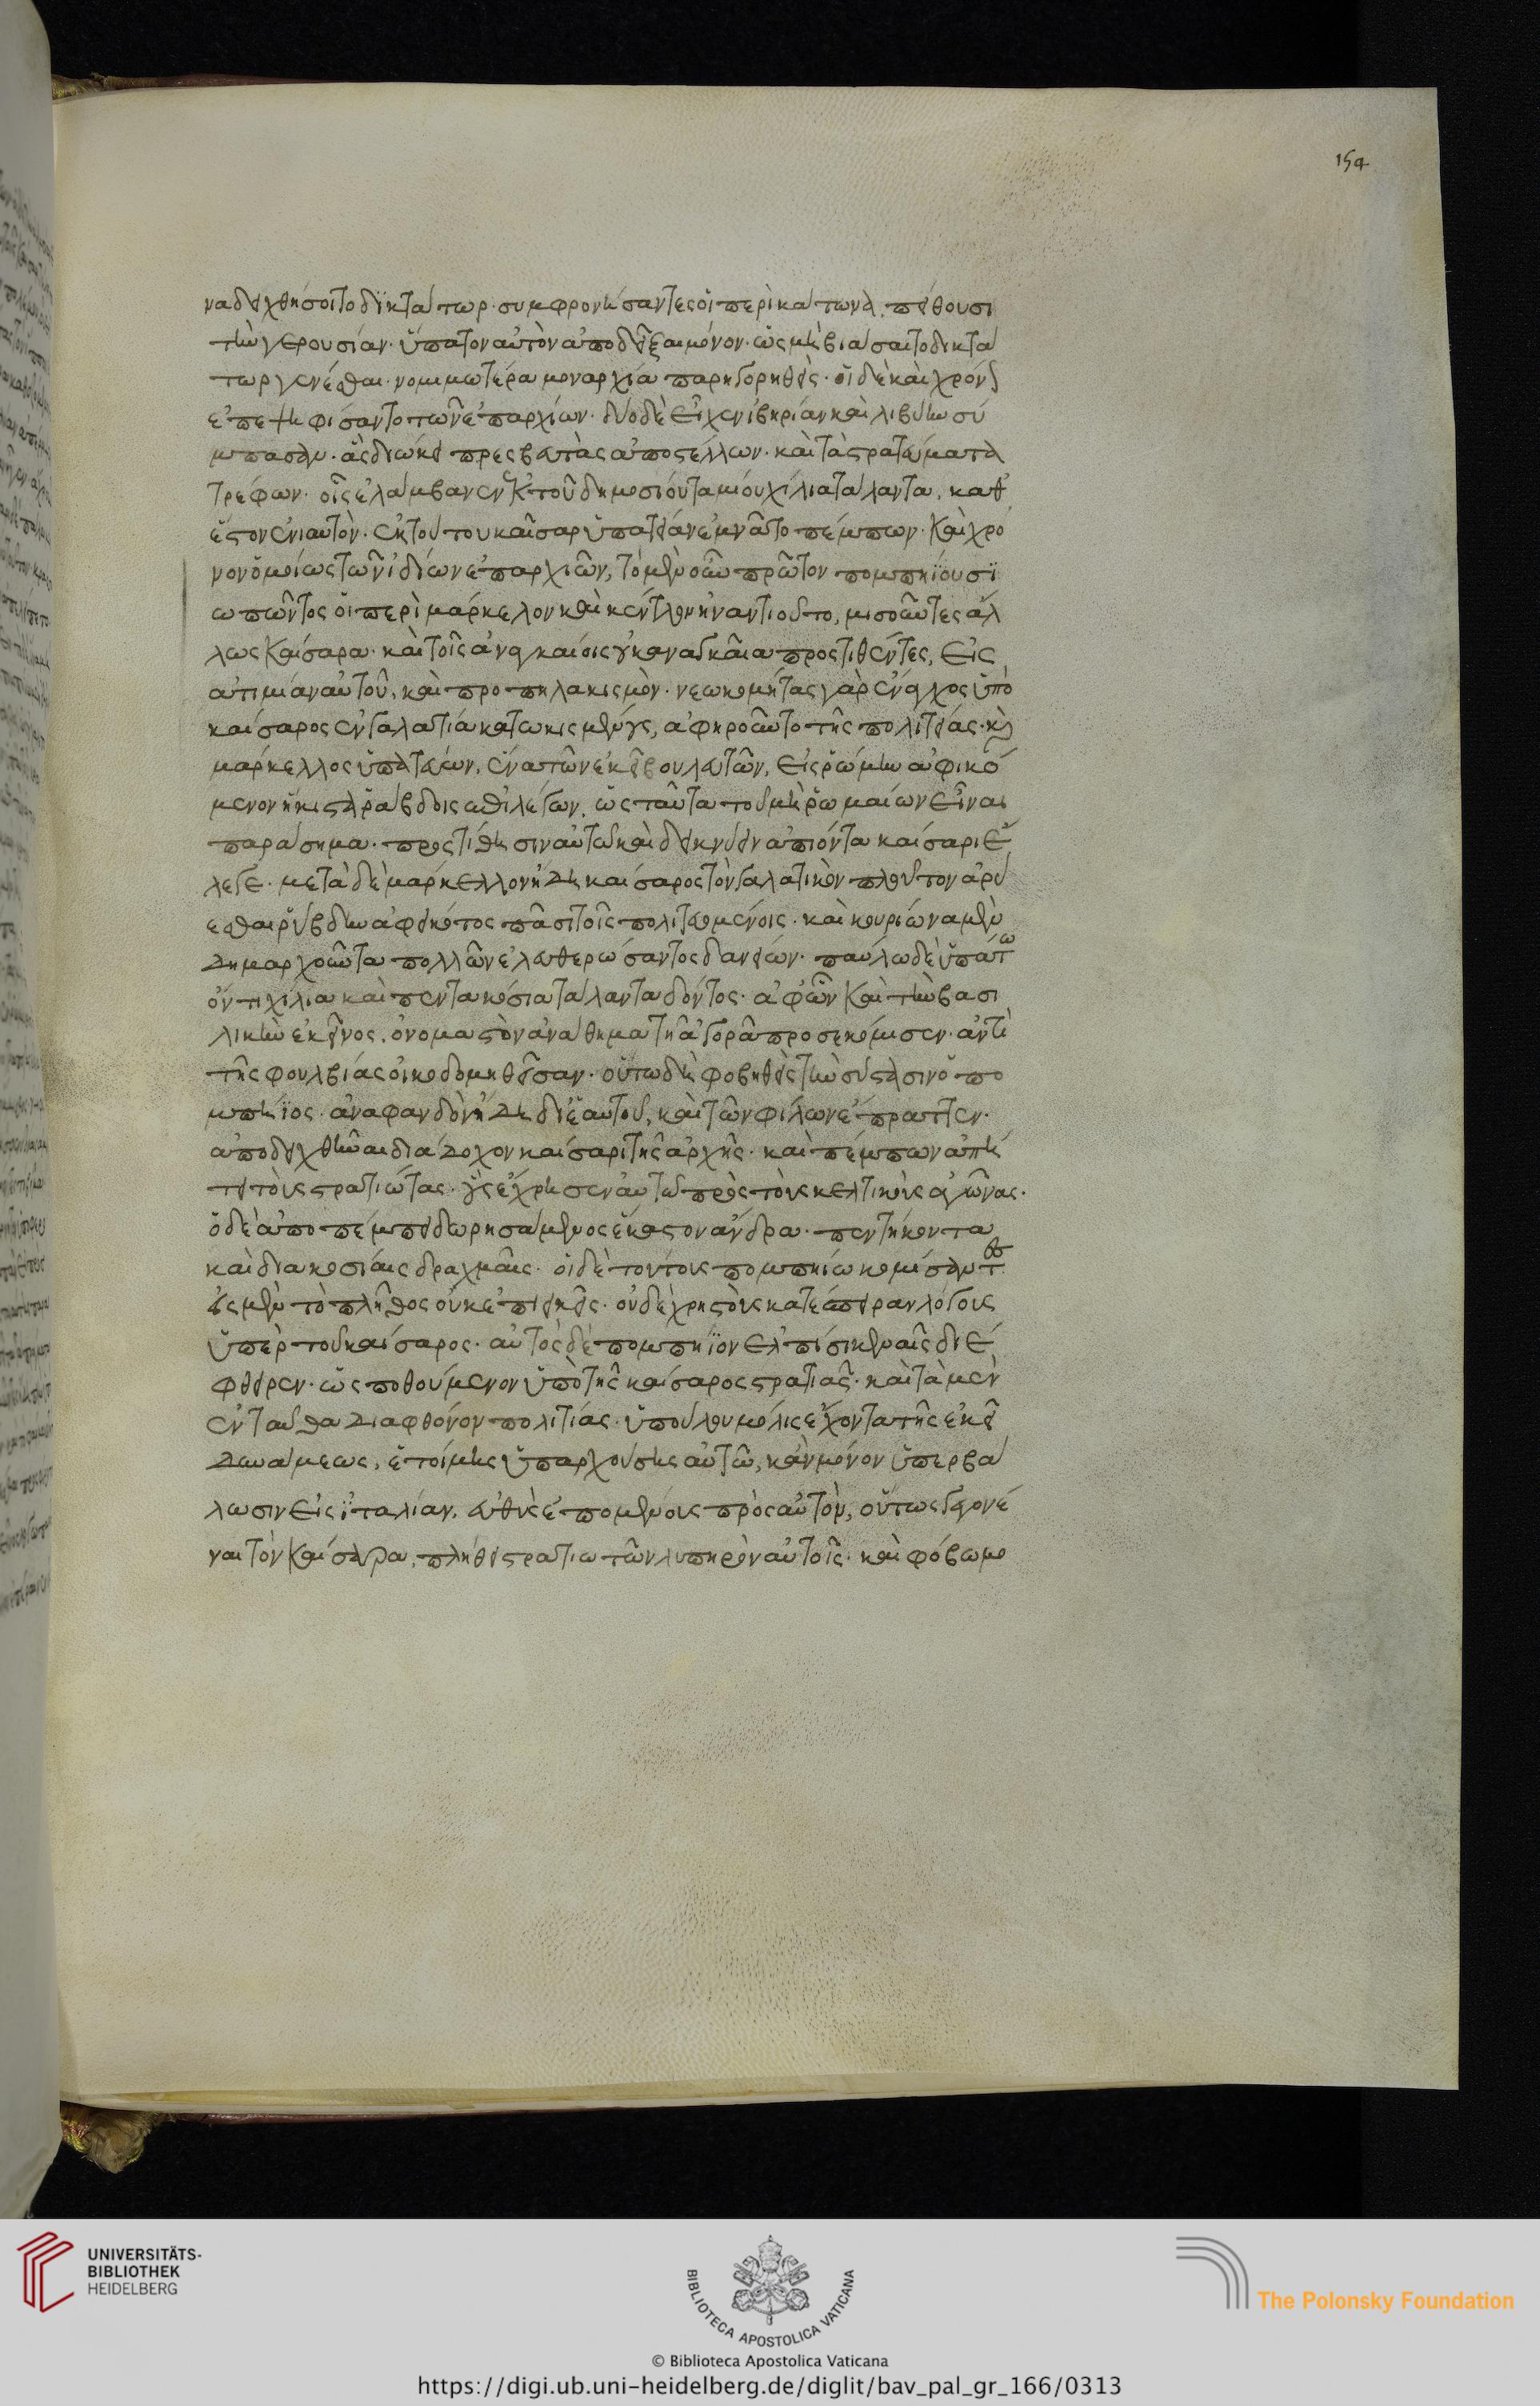 154
ναδειχθήσοιτο δϊκτάτωρ· συμφρονήσαντες οἱ περὶ κάτωνα, πείθουσι
τὴν γερουσίαν· ὕπατον αὐτὸν ἀποδεῖξαι μόνον· ὡς μὴ βιάσαιτο δικτά
τωρ γενέσθαι· νομιμωτέρα μοναρχία παρηγορηθεὶς· οἱ δὲ καὶ χρόνον
ἐπεψηφίσαντο τῶν ἐπαρχίων· δύο δὲ εἶχεν ἰβηρίαν καὶ λιβύην σύ
μπασαν· ἃς διώκει πρεσβευτὰς ἀποστέλλων· καὶ τὰ στρατεύματα
τρέφων· οἷς ἐλάμβανεν ἐκ τοῦ δημοσίου ταμιου χίλια τάλαντα, καθ'
ἕκαστον ἐνιαυτὸν· ἐκ τούτου καῖσαρ ὑπατείαν ἐμνᾶτο πέμπων· καὶ χρό
νον ὁμοίως τῶν ἰδίων ἐπαρχιῶν, τὸ μὲν οὖν πρῶτον πομπηΐου σϊ
ωπῶντος οἱ περὶ μάρκελον καὶ κέντλον ἠναντιοῦντο, μισοῦντες ἄλ
λως καίσαρα· καὶ τοῖς ἀναγκαίοις οὐκ ἀναγκαῖα προστιθέντες, εἰς
ἀτιμίαν αὐτοῦ, καὶ προπηλακισμὸν· νεωκομήτας γὰρ ἔναγχος ὑπὸ
καίσαρος ἐν γαλατία κατωκισμένους, ἀφηροῦντο τῆς πολιτείας· καὶ
μάρκελλος ὑπατεύων, ἕνα τῶν ἐκεῖ βουλευτῶν, εἰς ῥώμην ἀφικό
μενον ἤκιστα ῥάβδοις ἐπιλέγων, ὡς ταῦτα τοῦ μὴ ῥωμαίων εἶναι
παράσημα· προστίθησιν αὐτῶ καὶ δεικνύειν ἀπιόντα καίσαρι ἔ
λεγε· μετὰ δὲ μάρκελλον ἤδη καίσαρος τὸν γαλατικὸν πλοῦτον ἀρύ
εσθαι ῥύβδην ἀφεικότος πᾶσι τοῖς πολιτευομένοις· καὶ κουρίωνα μὲν
δημαρχοῦντα πολλῶν ἐλευθερώσαντος δανείων· παύλω δὲ ὑπάτω
ὄντι χίλια καὶ πεντακόσια τάλαντα δόντος· ἀφ' ὧν καὶ τὴν βασι
λικὴν ἐκεῖνος, ὀνομαστὸν ἀνάθημα τῆ ἀγορᾶ προσεκόμισεν· ἀντὶ
τῆς φουλβίας οἰκοδομηθεῖσαν· οὕτω δὴ φοβηθεὶς τὴν σύστασιν ὁ πο
μπήϊος· ἀναφανδὸν ἤδη δι' ἑαυτοῦ, καὶ τῶν φίλων ἔπραττεν·
ἀποδειχθῆναι διάδοχον καίσαρι τῆς ἀρχῆς· καὶ πέμπων ἀπή
τει τοὺς στρατιώτας· οὓς ἔχρησεν αὐτῶ πρὸς τοὺς κελτικοὺς ἀγῶνας·
ὁ δὲ ἀποπέμπει δωρησάμενος ἕκαστον ἄνδρα· πεντήκοντα
καὶ διακοσίαις δραχμαῖς· οἱ δὲ τούτους πομπηίω κομίσαντες
εἰς μὲν τὸ πλῆθος οὐκ ἐπιεικεῖς· οὐδὲ χρηστοὺς κατέσπειραν λόγους
ὑπὲρ τοῦ καίσαρος· αὐτὸς δὲ πομπήϊον ἐλπίσι κεναῖς διέ
φθειρεν· ὡς ποθούμενον ὑπὸ τῆς καίσαρος στρατιᾶς· καὶ τὰ μὲν
ἐνταῦθα δια φθόνον πολιτίας· ὑπούλου μόλις ἔχοντα τῆς ἐκεῖ
δυνάμεως, ἑτοίμης ὑπαρχούσης αὐτῶ, κἂν μόνον ὑπερβά
λωσιν εἰς ϊταλίαν, εὐθὺς ἐπομένους πρὸς αὐτὸν, οὕτως γεγονέ
ναι τὸν καίσαρα, πλήθει στρατιωτῶν λυπηρὸν αὐτοῖς· καὶ φόβω μο
UNIVERSITÄTS-
BIBLIOTHEK
HEIDELBERG
BIBLIOTECA APOSTOLICA VATICANA
The Polonsky Foundation
© Biblioteca Apostolica Vaticana
https://digi.ub.uni-heidelberg.de/diglit/bav_pal_gr_166/0313